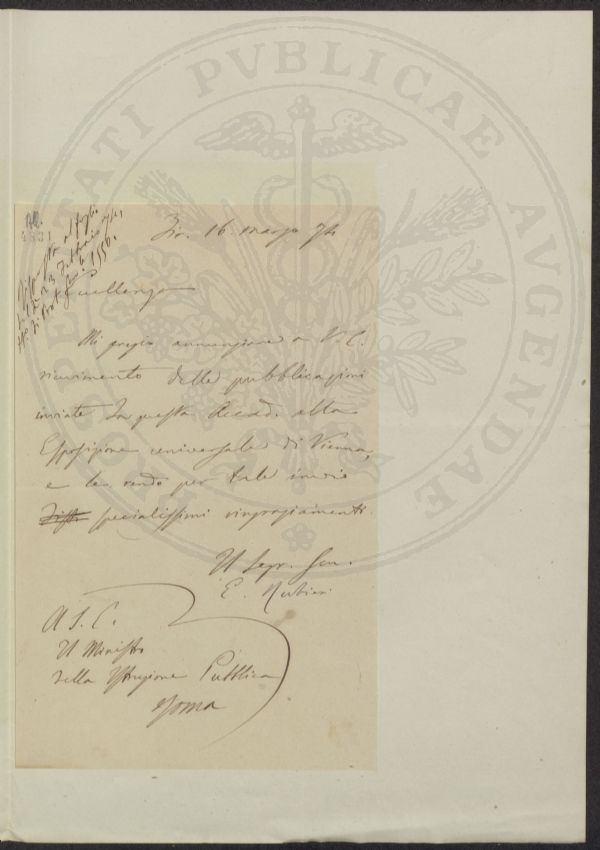 PROSPERITATI PVBLICAE AVGENDAE
AC.
4891
Risposta al foglio
di Prot. Gen. 1556.
Fir. 16. marzo 74
Eccellenza
Mi pregio annunziare a V. E.
ricevimento delle pubblicazioni
inviate da questa Accad. alla
Esposizione universale di Vienna,
e le rendo per tale invio
specialissimi ringraziamenti.
Il Segr. Gen.
E. Rubieri
A S. E.
Il Ministro
della Istruzione Pubblica
Roma